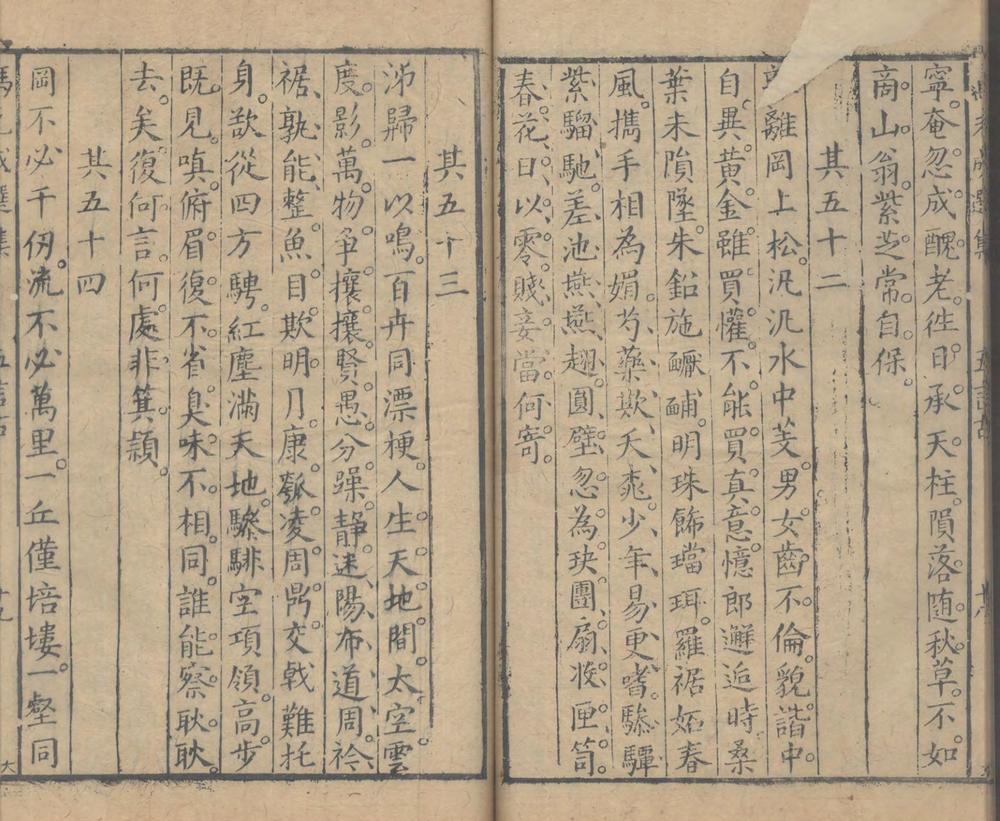 寧奄忽成醜老徃日承天柱隕落随秋草不如
商山翁紫芝常自保
其五十二
離岡上松汎汎水中芰男女齒不倫貌諧中
自異黃金雖買懽不能買真意憶郎邂逅時桑
葉未隕墜朱鉛施靨䩉明珠飾璫珥羅裾妬春
風攜手相為媚芍藥欺夭桃少年易更嗜驂驔
紫騮馳差池燕燕翅圓璧忽為玦團扇浲匣笥
春花日以零賤妾當何寄
其五十三
沸歸一以鳴百卉同漂梗人生天地間太空雲
度影萬物爭攘攘賢愚分躁靜迷陽布道周衿
裾孰能整魚目欺明月康瓠凌周鼎交戟難托
身欲從四方騁紅塵滿天地驂騑空項領高步
既見嗔俯眉復不省臭味不相同誰能察耿耿
去矣復何言何處非箕潁
其五十四
岡不必千仞流不必萬里一丘僅培塿一壑同